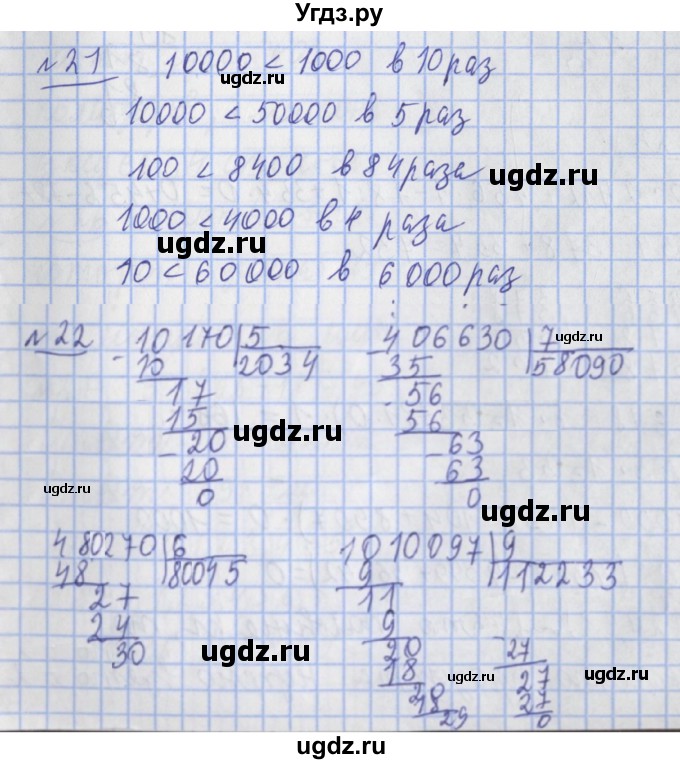 Угдз.ру
№21 10000 < 1000 в 10 раз
ugdz.ru
10000 < 50000 в 5 раз
100 < 8400 в 84 раза
ugdz.ru
1000 < 4000 в 4 раза
ugdz.ru
10 < 60000 в 6000 раз
№22 10170 5
10 2034
17
15
20
20
0
406630 7
35 58090
56
56
63
63
0
ugdz.ru
ugdz.ru
ugdz.ru
ugdz.ru
480270 6
48 80045
27
24
30
1010097 9
9 112233
11
9
20
18
29
27
27
27
0
ugdz.ru
ugdz.ru
ugdz.ru
ugdz.ru